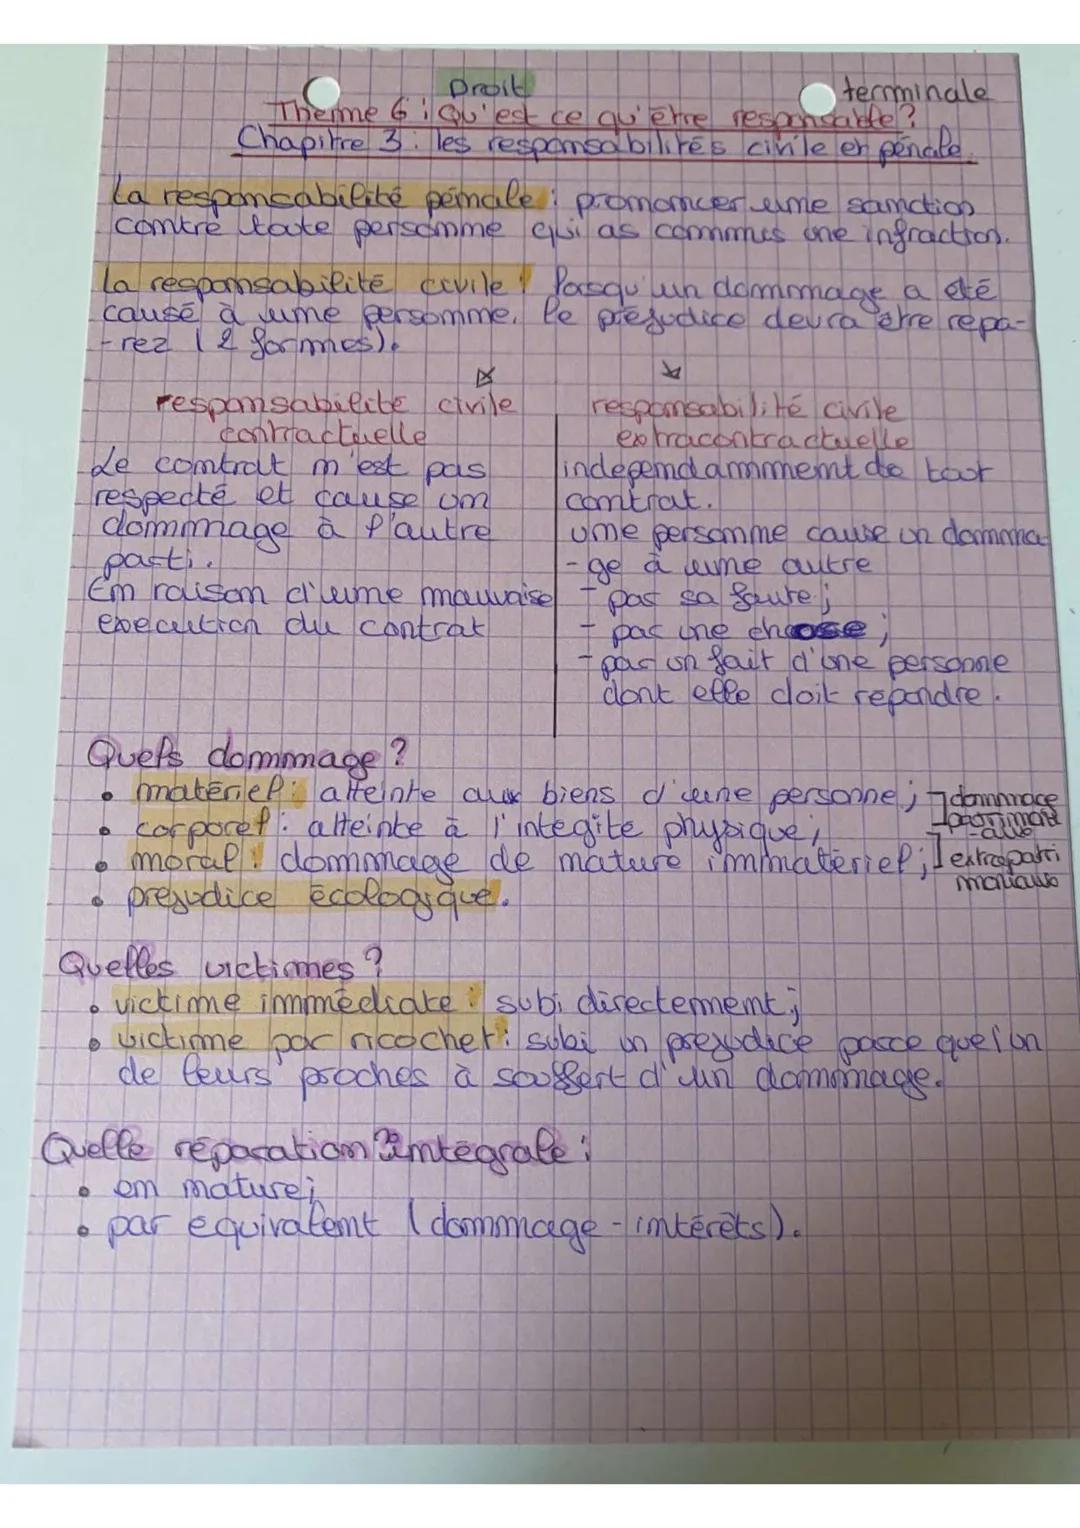 Droit
terminale
Theme 6 : Qu'est ce qu'être responsable ?
Chapitre 3 : les responsabilités civile et pénale.
La responsabilité pénale : prononcer une sanction
contre toute personne qui as commis une infraction.
La responsabilité civile : lorsqu'un dommage a été
causé à une personne. Le préjudice devra être répa-
-rez (2 formes).
responsabilité civile
contractuelle
Le contrat n'est pas
respecté et cause un
dommage à l'autre
parti.
En raison d'une mauvaise
execution du contrat
responsabilité civile
extracontractuelle
independamment de tout
contrat.
une personne cause un domma
-ge à une autre
- par sa faute ;
- par une chose ;
- par un fait d'une personne
dont elle doit repondre.
Quels dommage ?
• matériel : atteinte aux biens d'une personne ;
• corporel : atteinte à l'integite physique ;
• moral : dommage de nature immatériel ;
• prejudice écologique.
dommage
patrimoni
-aux
extrapatri
moniaux
Quelles victimes ?
• victime immédiate : subi directement ;
• victime par ricochet : subi un prejudice parce que l'un
de leurs proches à souffert d'un dommage.
Quelle réparation ? intégrale :
• en nature ;
• par equivalent (dommage - intérêts).